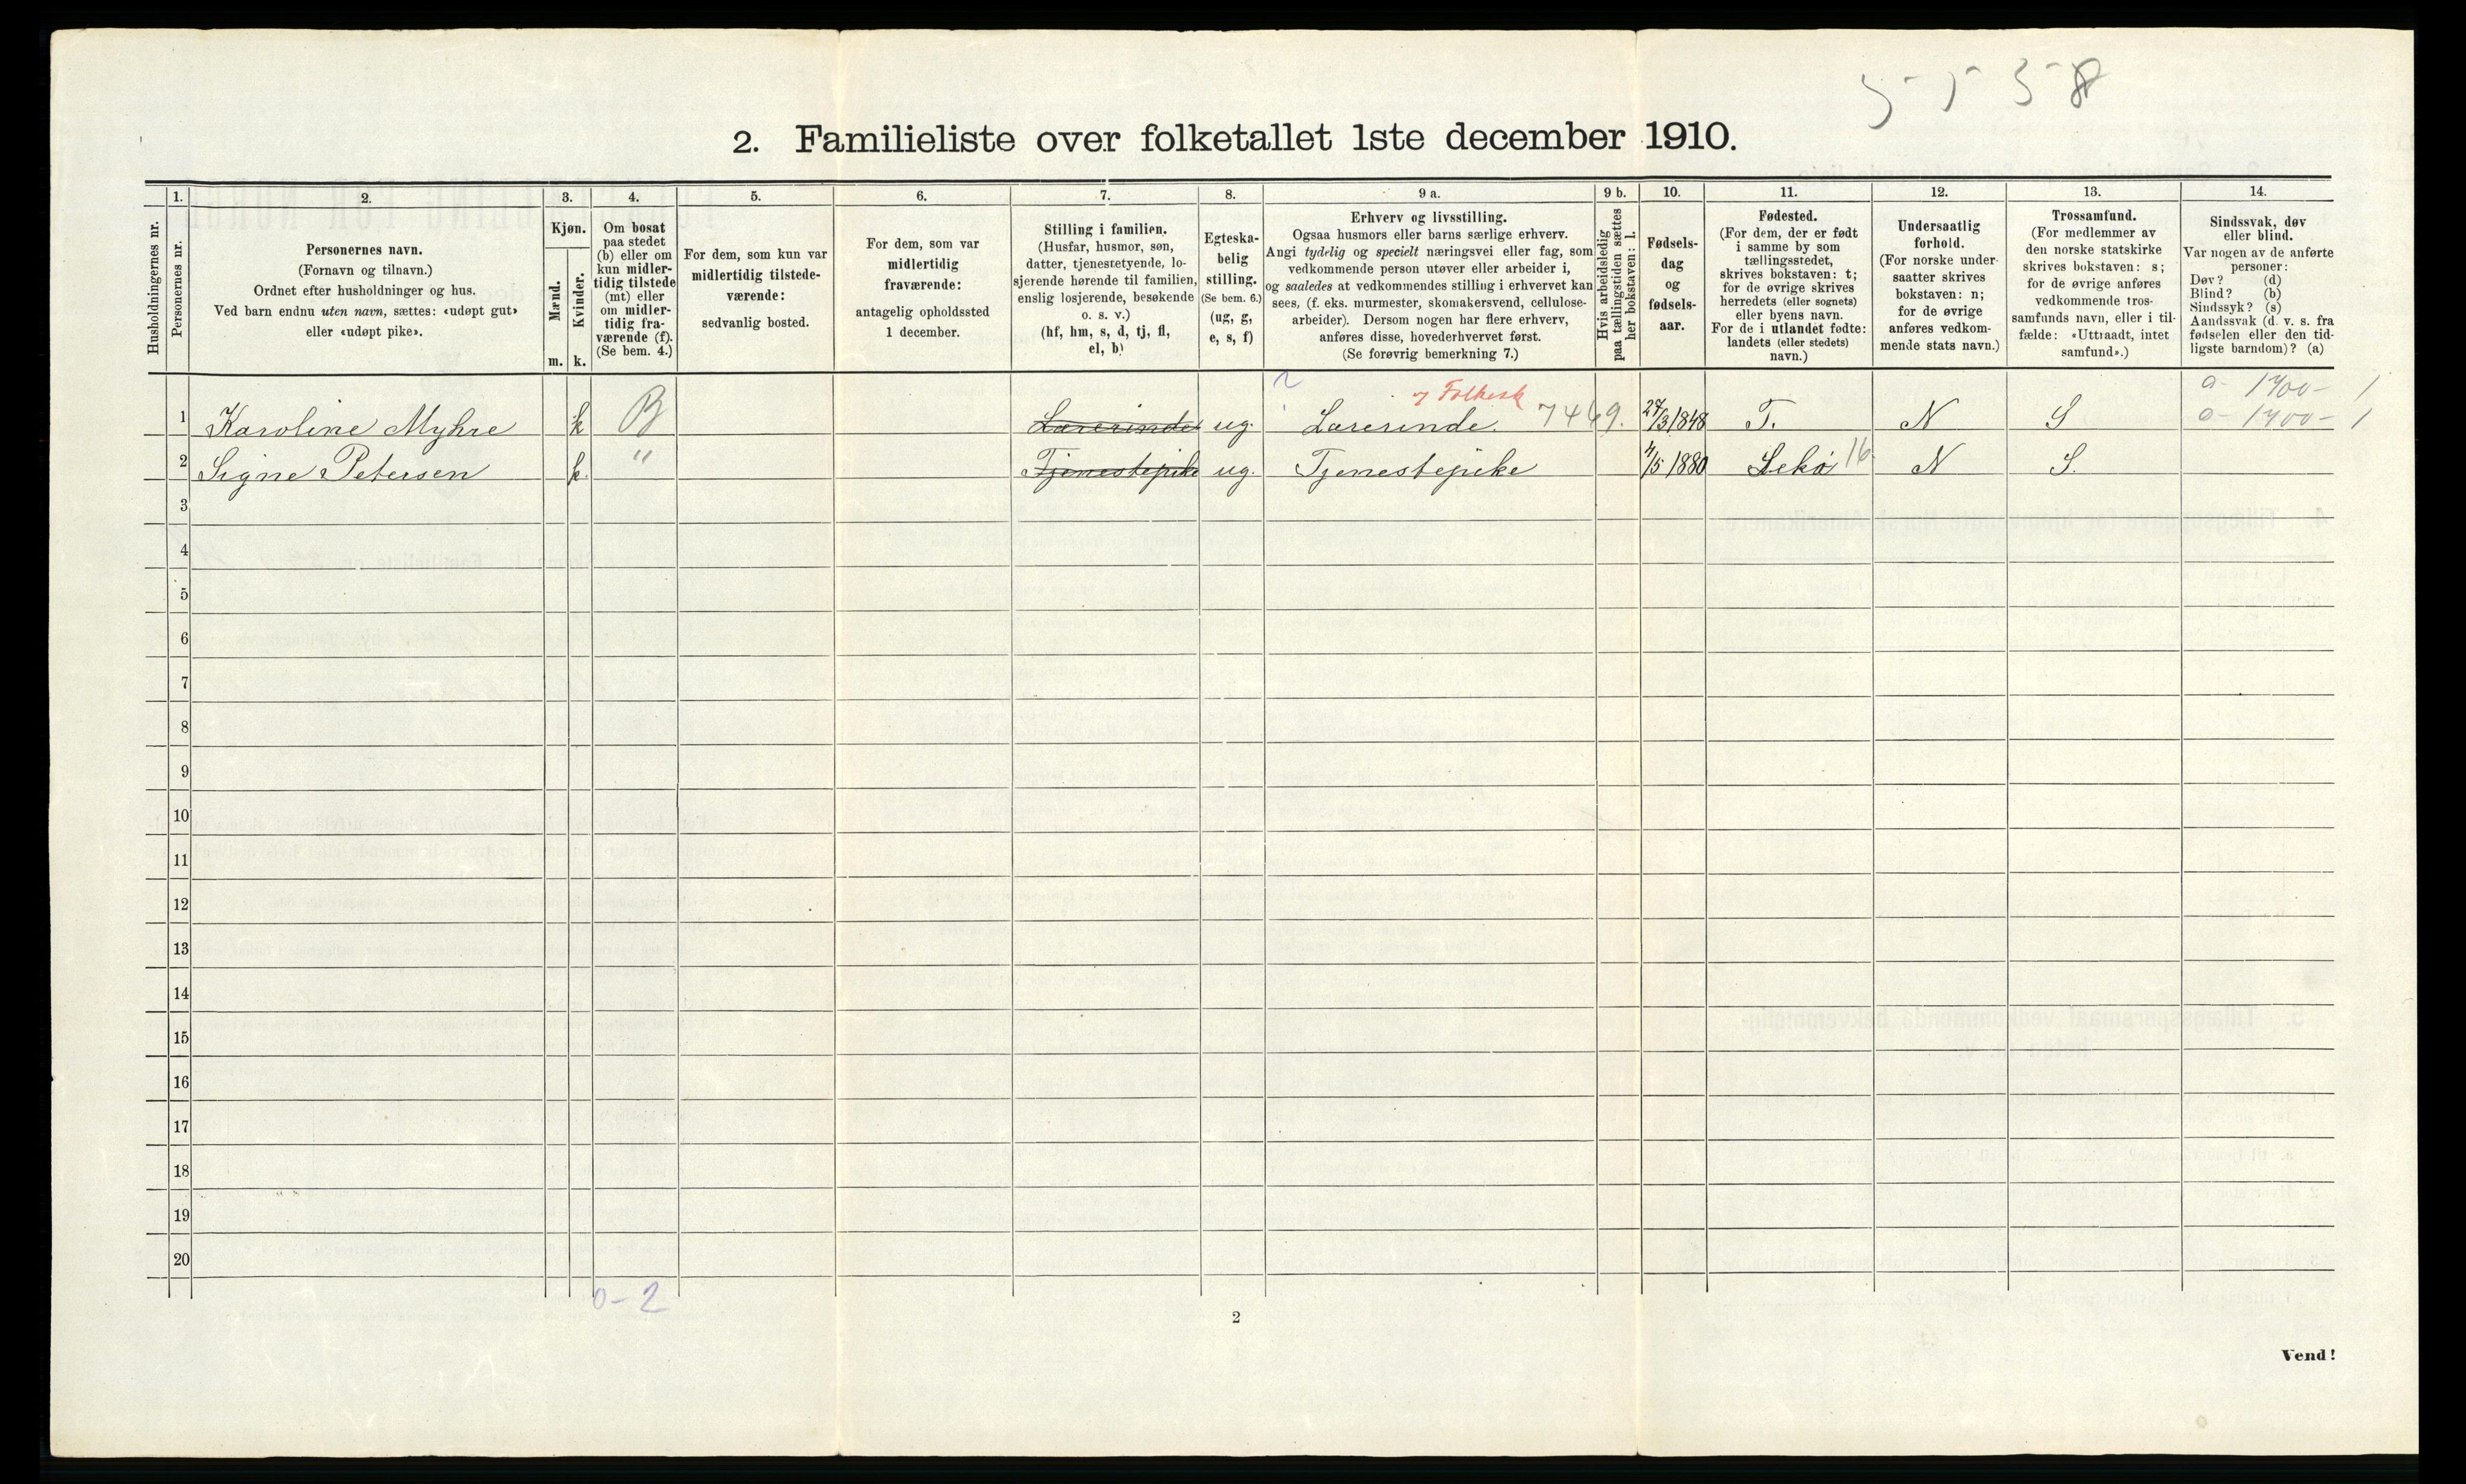 5 - 5 - 3 - 8
2. Familieliste over folketallet 1ste december 1910.
Husholdningernes nr.
1.
Personernes nr.
2.
Personernes navn.
(Fornavn og tilnavn.)
Ordnet efter husholdninger og hus.
Ved barn endnu uten navn, sættes: «udøpt gut»
eller «udøpt pike».
3.
Kjøn.
Mænd.
m.
Kvinder.
k.
4.
Om bosat
paa stedet
(b) eller om
kun midler-
tidig tilstede
(mt) eller
om midler-
tidig fra-
værende (f).
(Se bem. 4.)
5.
For dem, som kun var
midlertidig tilstede-
værende:
sedvanlig bosted.
6.
For dem, som var
midlertidig
fraværende:
antagelig opholdssted
1 december.
7.
Stilling i familien.
(Husfar, husmor, søn,
datter, tjenestetyende, lo-
sjerende hørende til familien,
enslig losjerende, besøkende
o. s. v.)
(hf, hm, s, d, tj, fl,
el, b)
8.
Egteska-
belig
stilling.
(Se bem. 6.)
(ug, g,
e, s, f)
9 a.
Erhverv og livsstilling.
Ogsaa husmors eller barns særlige erhverv.
Angi tydelig og specielt næringsvei eller fag, som
vedkommende person utøver eller arbeider i,
og saaledes at vedkommendes stilling i erhvervet kan
sees, (f. eks. murmester, skomakersvend, cellulose-
arbeider). Dersom nogen har flere erhverv,
anføres disse, hovederhvervet først.
(Se forøvrig bemerkning 7.)
9 b.
Hvis arbeidsledig
paa tællingstiden sættes
her bokstaven: l.
10.
Fødsels-
dag
og
fødsels-
aar.
11.
Fødested.
(For dem, der er født
i samme by som
tællingsstedet,
skrives bokstaven: t;
for de øvrige skrives
herredets (eller sognets)
eller byens navn.
For de i utlandet fødte:
landets (eller stedets)
navn.)
12.
Undersaatlig
forhold.
(For norske under-
saatter skrives
bokstaven: n;
for de øvrige
anføres vedkom-
mende stats navn.)
13.
Trossamfund.
(For medlemmer av
den norske statskirke
skrives bokstaven: s;
for de øvrige anføres
vedkommende tros-
samfunds navn, eller i til-
fælde: «Uttraadt, intet
samfund».)
14.
Sindssvak, døv
eller blind.
Var nogen av de anførte
personer:
Døv? (d)
Blind? (b)
Sindssyk? (s)
Aandssvak (d. v. s. fra
fødselen eller den tid-
ligste barndom)? (a)
7 Folkesk
a- 1700- 1
1 Karoline Myhre k B Lærerinde ug. Lærerinde. 7469. 27/3 1848 T. N S a- 1700- 1
2 Signe Petersen k. " Tjenestepike ug. Tjenestepike 4/5 1880 Lekø 16. N S.
3
4
5
6
7
8
9
10
11
12
13
14
15
16
17
18
19
20
0-2
2
Vend!